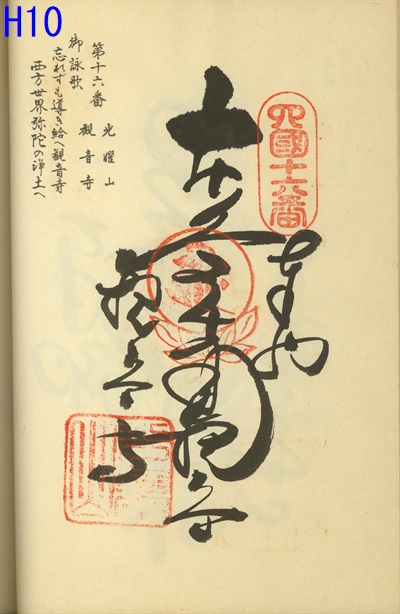 H10
四國十六番
奉納
観音寺
第十六番 光耀山
観音寺
御詠歌
忘れずも導き給へ観音寺
西方世界弥陀の浄土へ